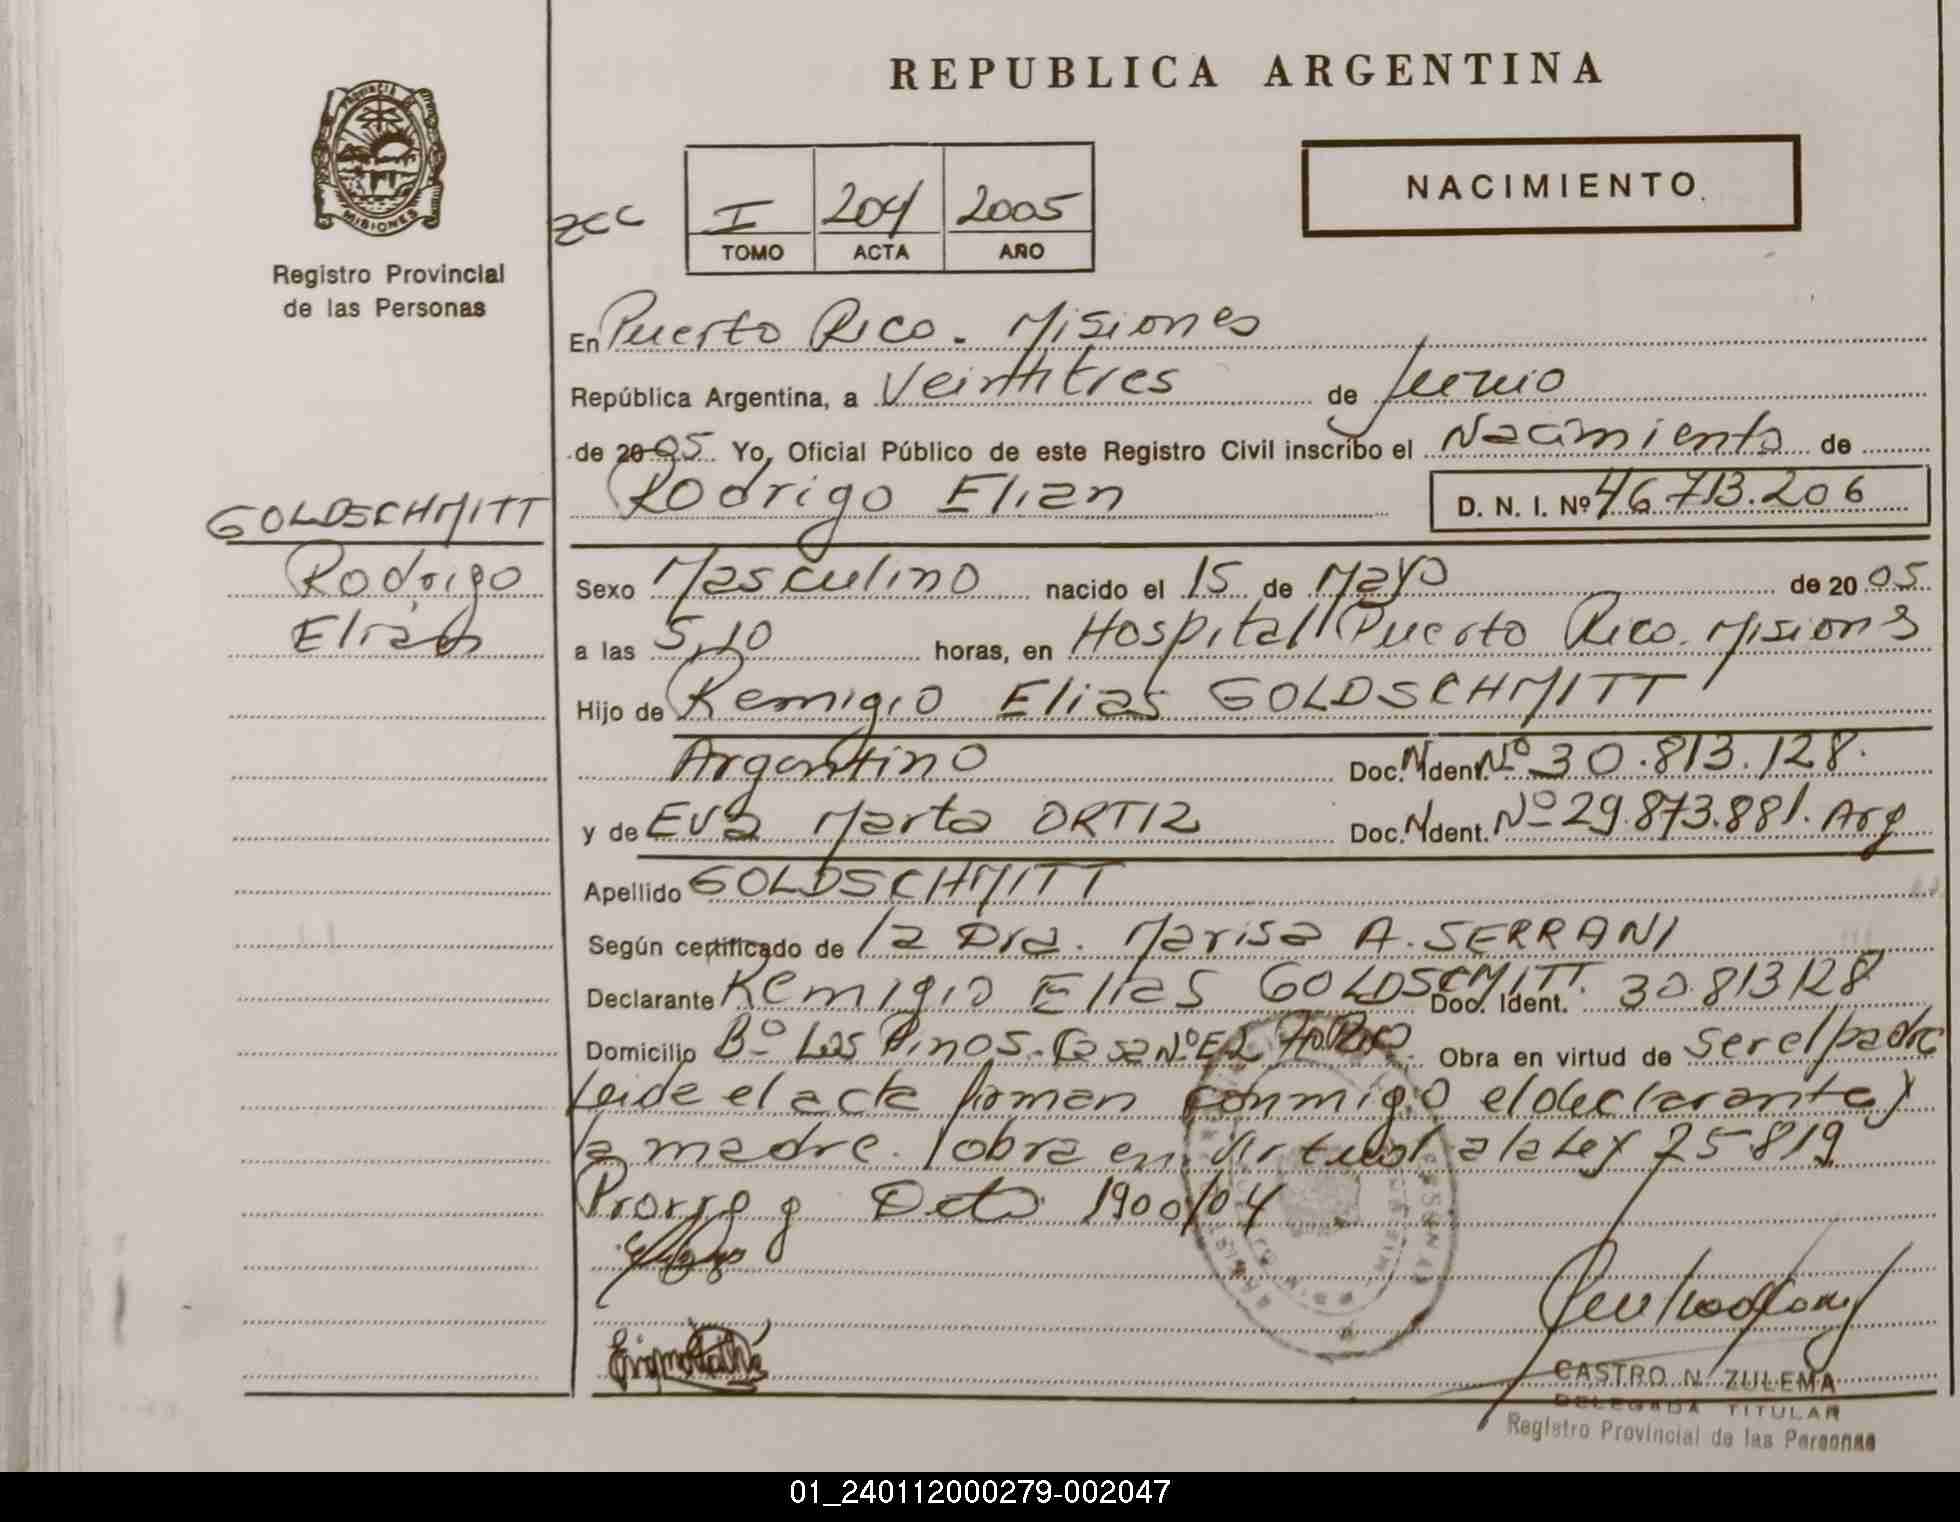 REPUBLICA ARGENTINA
PROVINCIA DE
MISIONES
Registro Provincial
de las Personas
zcc
I 204 2005
TOMO ACTA AÑO
NACIMIENTO
En Puerto Rico. Misiones
República Argentina, a Veintitres de Junio
de 2005 Yo, Oficial Público de este Registro Civil inscribo el Nacimiento de
Rodrigo Elian D. N. I. Nº 46.713.206
GOLDSCHMITT
Rodrigo
Elian
Sexo Masculino nacido el 15 de Mayo de 20 05
a las 5,10 horas, en Hospital Puerto Rico. Misiones
Hijo de Remigio Elias GOLDSCHMITT
Argentino Doc. N Ident. Nº 30.813.128.
y de Eva Marta ORTIZ Doc. N Ident. Nº 29.873.881. Arg
Apellido GOLDSCHMITT
Según certificado de la Dra. Marisa A. SERRANI
Declarante Remigio Elias GOLDSCMITT. Doc. Ident. 30.813128
Domicilio Bº Los Pinos. Casa Nº E2 Obra en virtud de ser el padre
Leida el acta firman conmigo el declarante y
la madre. obra en virtud a la Ley 25819
Prorrg g Dcto 1900/04
CASTRO N. ZULEMA
DELEGADA TITULAR
Registro Provincial de las Personas
01_240112000279-002047